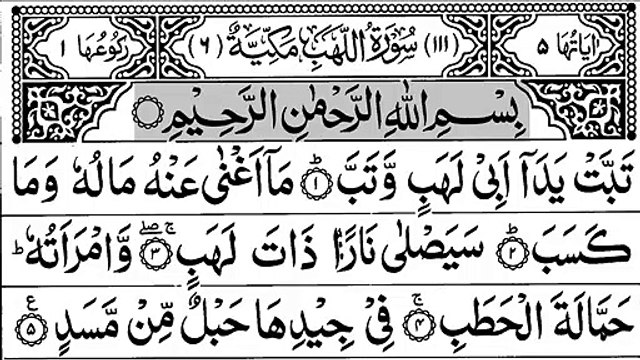 اٰیَاتُهَا ۵ (۱۱۱) سُوْرَةُ اللَّهَبِ مَكِّيَّةٌ (۶) رُكُوْعُهَا ۱
بِسْمِ اللّٰهِ الرَّحْمٰنِ الرَّحِيْمِ
تَبَّتْ يَدَاۤ اَبِيْ لَهَبٍ وَّتَبَّ ؕ۱ مَاۤ اَغْنٰى عَنْهُ مَالُهٗ وَمَا
كَسَبَ ؕ۲ سَيَصْلٰى نَارًا ذَاتَ لَهَبٍ ۚۖ۳ وَّامْرَاَتُهٗ ؕ
حَمَّالَةَ الْحَطَبِ ۚ۴ فِيْ جِيْدِهَا حَبْلٌ مِّنْ مَّسَدٍ ۵ع